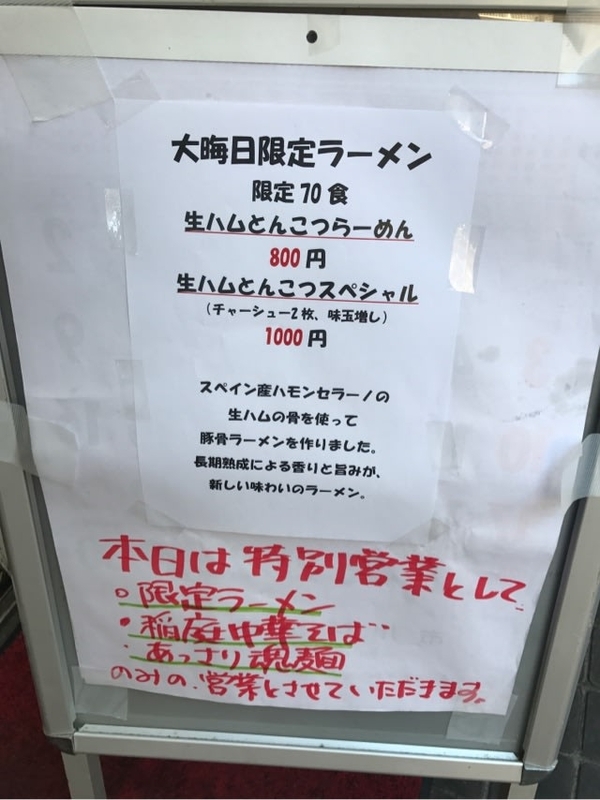 大晦日限定ラーメン
限定70食
生ハムとんこつらーめん
800円
生ハムとんこつスペシャル
（チャーシュー2枚、味玉増し）
1000円
スペイン産ハモンセラーノの
生ハムの骨を使って
豚骨ラーメンを作りました。
長期熟成による香りと旨みが、
新しい味わいのラーメン。
本日は特別営業として、
○限定ラーメン
・稲庭中華そば
・あっさり魂麺
のみの、営業とさせていただきます。